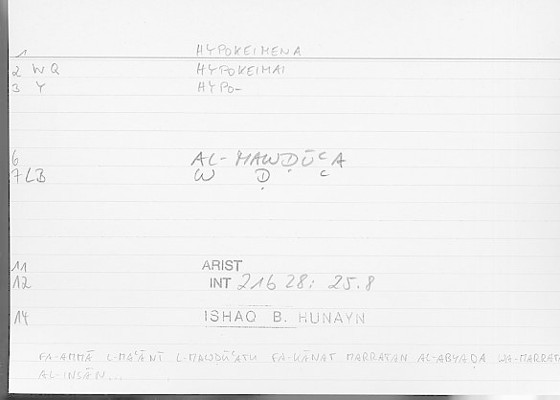 1 HYPOKEIMENA
2 W Q HYPOKEIMAI
3 Y HYPO-
6 AL-MAWḌŪᶜA
7 LB W Ḍ ᶜ
11 ARIST
12 INT 216 28; 25.8
14 ISHAQ B. HUNAYN
FA-AMMĀ L-MAᶜĀNĪ L-MAWḌŪᶜATU FA-KĀNAT MARRATAN AL-ABYAḌA WA-MARRATA
AL-INSĀN...